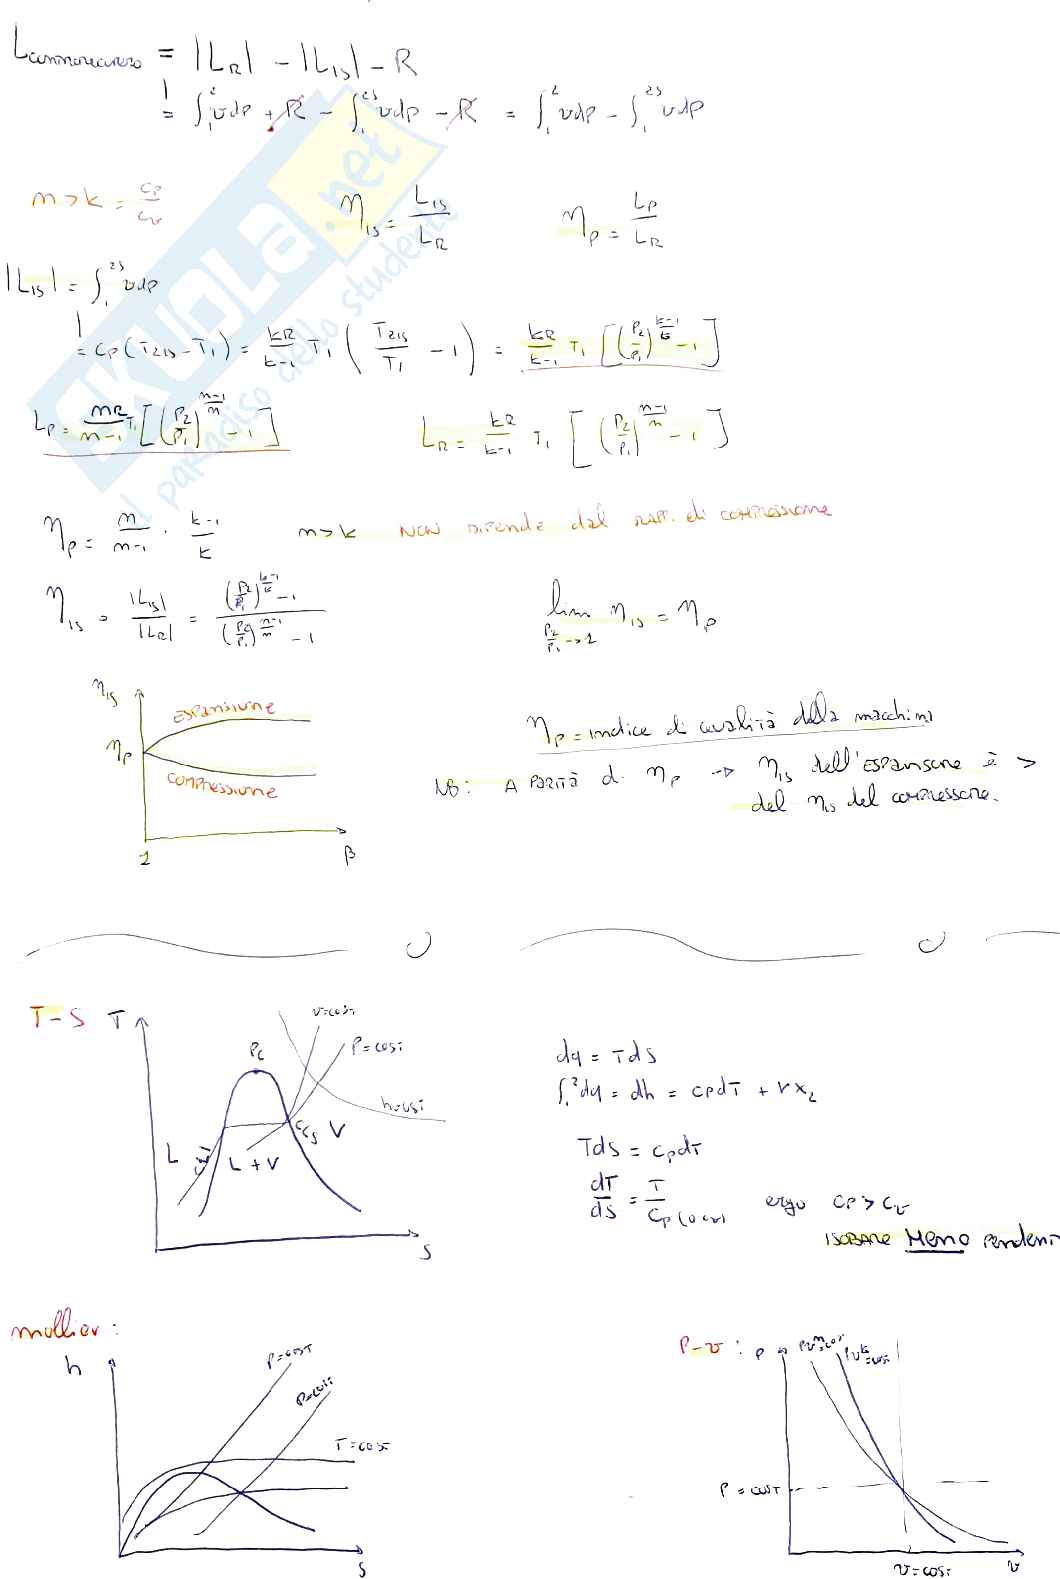 L controrecupero = |L_R| - |L_IS| - R
= ∫₁² vdp + R - ∫₁²ˢ vdp - R = ∫₁² vdp - ∫₁²ˢ vdp
n > k = cp/cv
η_is = L_IS/L_R
η_p = L_P/L_R
|L_IS| = ∫₁²ˢ vdp
= cp (T_2IS - T_1) = kR/k-1 T_1 (T_2IS/T_1 - 1) = kR/k-1 T_1 [(P_2/P_1)^(k-1/k) - 1]
L_P = nR/n-1 T_1 [(P_2/P_1)^(n-1/n) - 1]
L_R = kR/k-1 T_1 [(P_2/P_1)^(n-1/n) - 1]
η_p = n/n-1 · k-1/k
n > k NON DIPENDE dal RAPP. di COMPRESSIONE
η_is = |L_IS|/|L_R| = (P_2/P_1)^(k-1/k) - 1 / (P_2/P_1)^(n-1/n) - 1
lim P_2/P_1 → 1 η_is = η_p
η_is
ESPANSIONE
η_p
COMPRESSIONE
1
β
η_p = indice di qualità della macchina
NB: A PARITÀ di η_p → η_is dell'ESPANSIONE è >
del η_is del compressore.
T-S
T
v=cost
P=cost
Pc
h=cost
L
L+V
V
S
dq = Tds
∫₁² dq = dh = cpdT + r x_2
Tds = cpdT
dT/ds = T/cp (o cv) ergo cp > cv
ISOBARE MENO pendenti
mollier:
h
P=cost
P=cost
T=cost
S
P-v:
P
Pvⁿ=cost
Pvᵏ=cost
P=cost
v=cost
v
SKUOLA.net
il paradiso dello studente